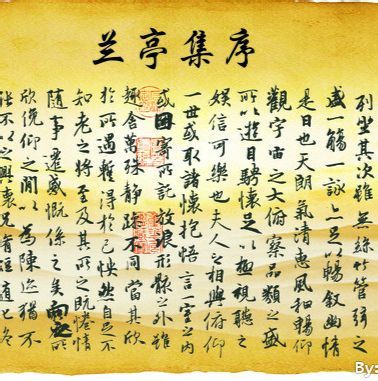 兰亭集序
列坐其次雖無絲竹管弦之
盛一觴一詠亦足以暢敘幽情
是日也天朗氣清惠風和暢仰
觀宇宙之大俯察品類之盛
所以遊目騁懷足以極視聽之
娛信可樂也夫人之相與俯仰
一世或取諸懷抱悟言一室之內
或因寄所託放浪形骸之外雖
趣舍萬殊靜躁不同當其欣
於所遇暫得於己快然自足不
知老之將至及其所之既惓情
隨事遷感慨係之矣向之所
欣俛仰之間以為陳迹猶不
能不以之興懷況脩短隨化終
By